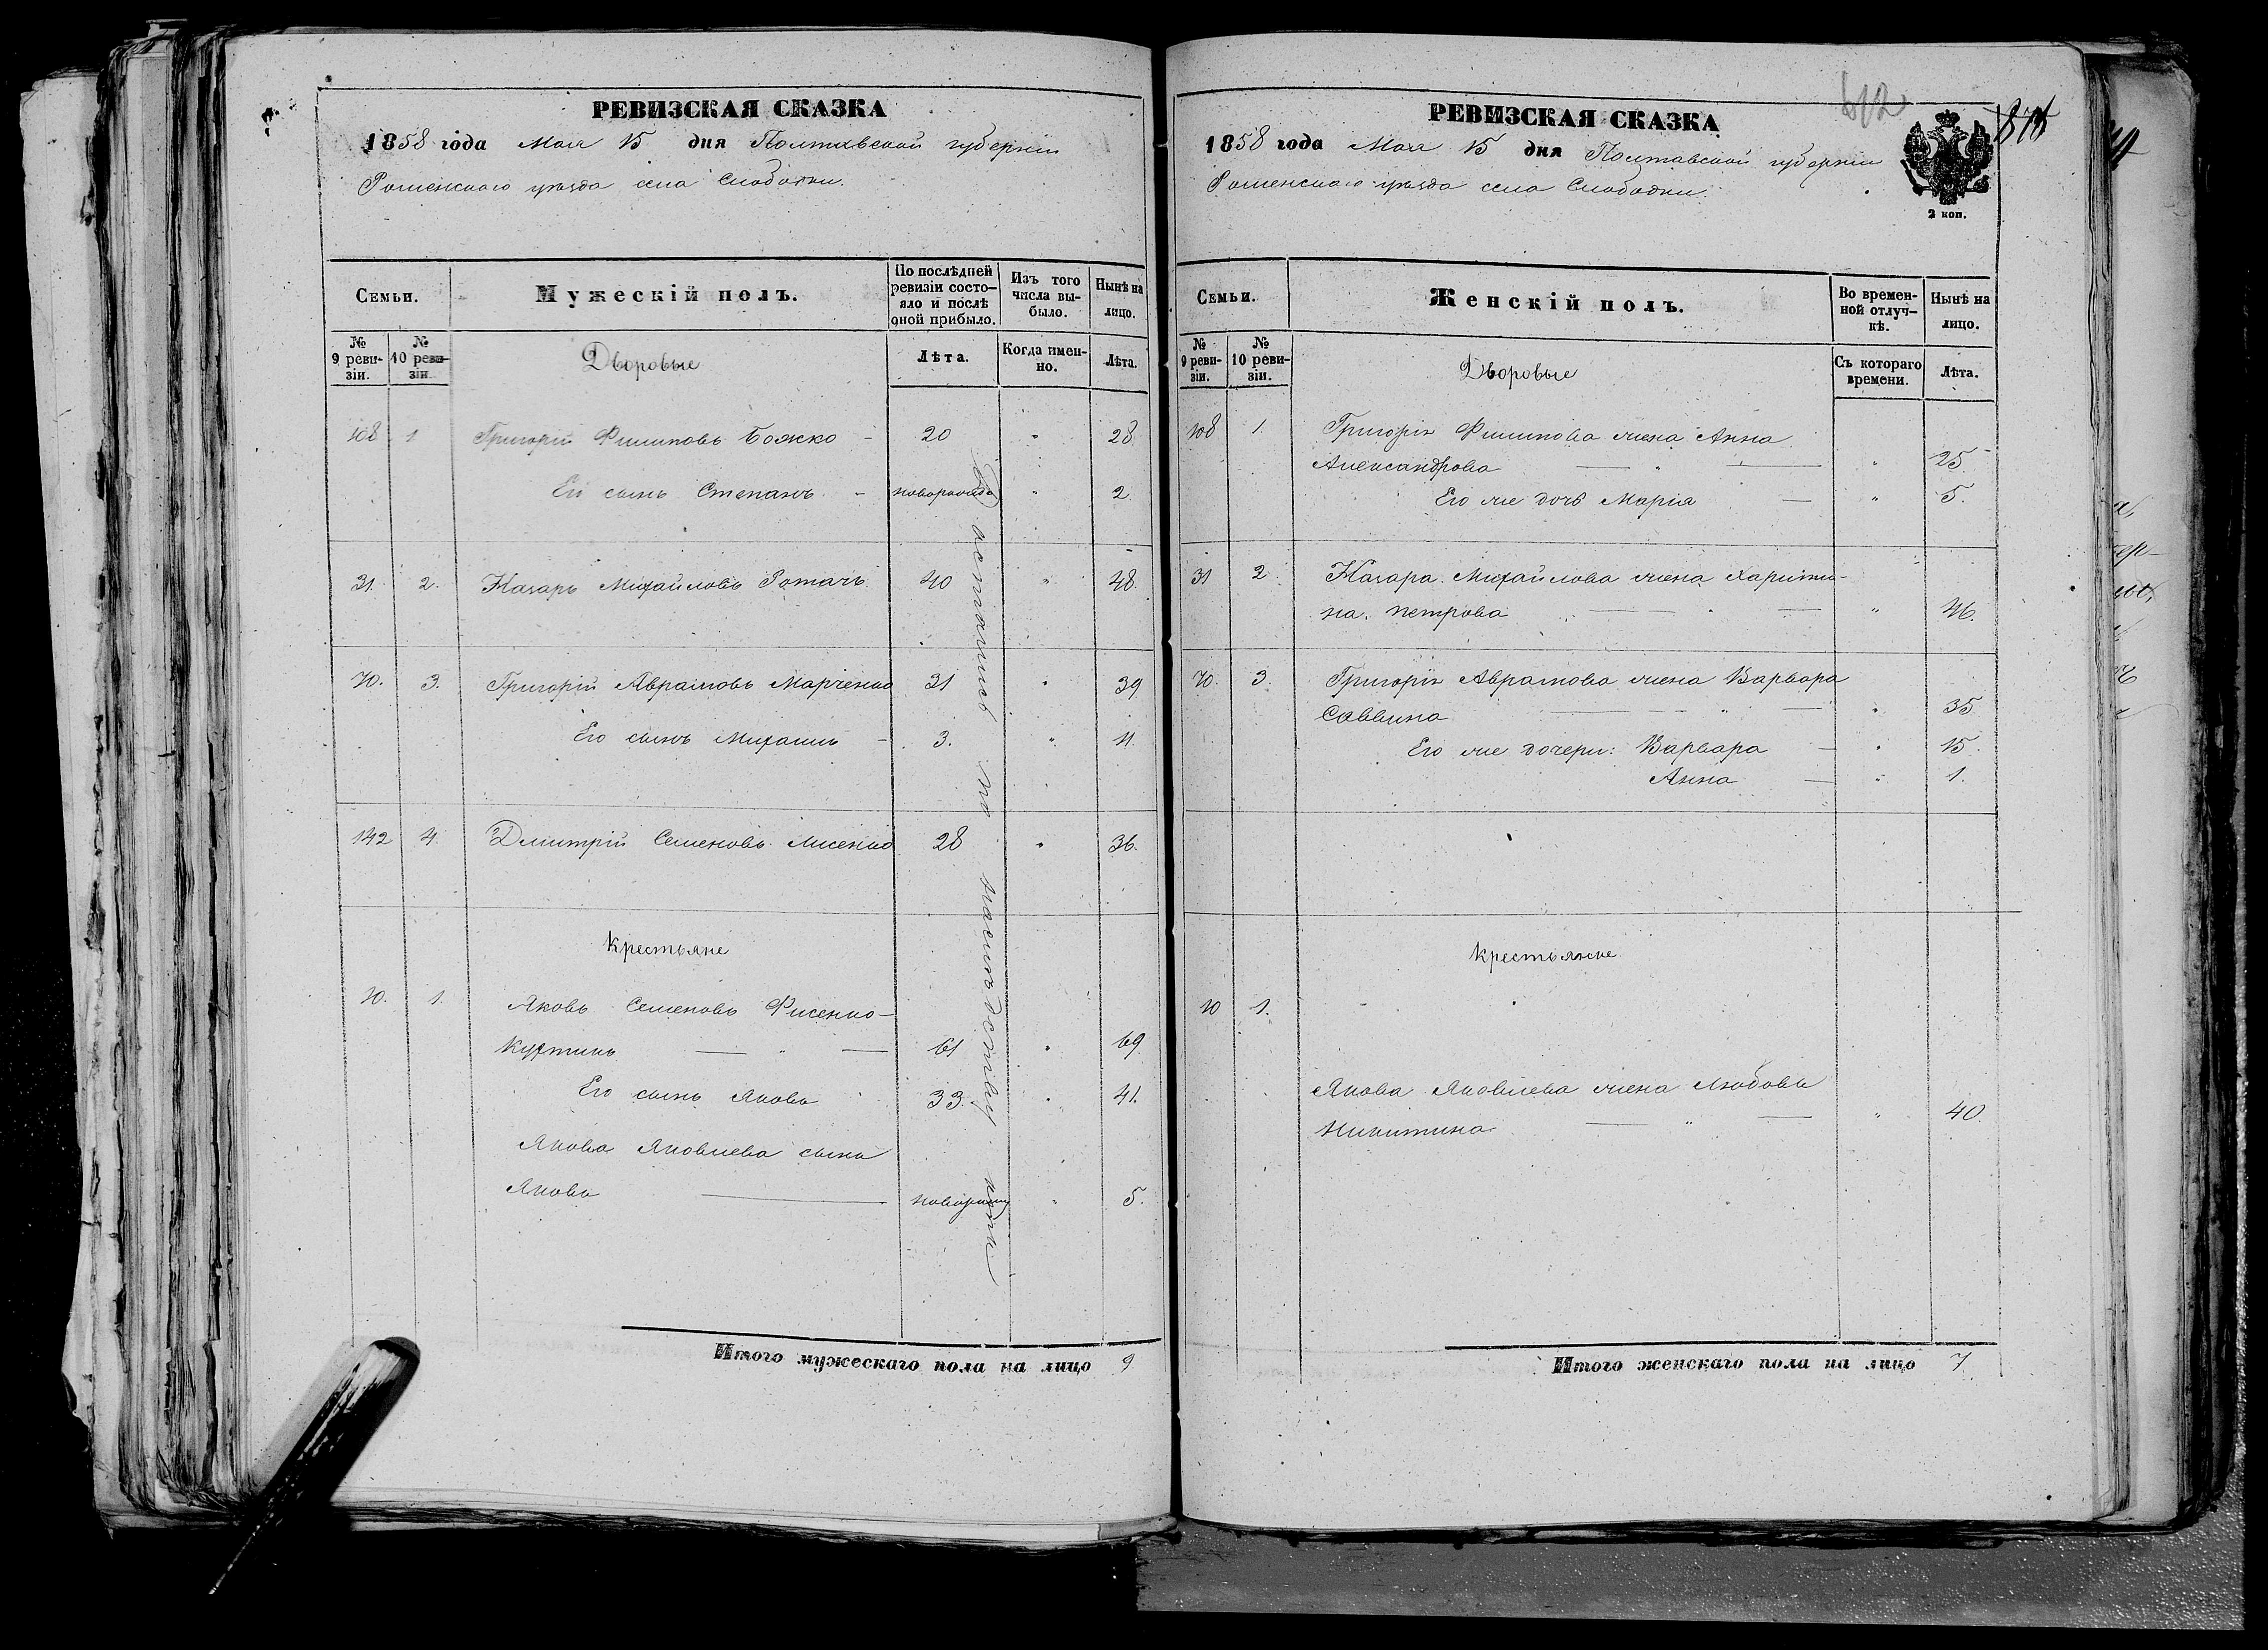 РЕВИЗСКАЯ СКАЗКА
1858 года Мая 15 дня Полтавской губернии
Роменского уѣзда села Слободки.
Семьи.
Мужескій полъ.
По послѣдней ревизіи состо-
яло и послѣ оной прибыло.
Изъ того числа вы-
было.
Нынѣ на лицо.
№ 9 реви-
зіи.
№ 10 реви-
зіи.
Дворовые
Лѣта.
Когда имен-
но.
Лѣта.
108 1 Григорій Филиповъ Божко - 20 " 28
Его сынъ Степанъ - новорожд " 2
31. 2. Назаръ Михайловъ Ротачъ 40 " 48
70. 3. Григорій Аврамовъ Марченко 31 " 39
Его сынъ Михаилъ - 3. " 11
142 4. Дмитрій Семеновъ Лисенко 28 " 36.
Крестьяне
10. 1. Яковъ Семеновъ Фисенко-
Кухтинъ — " — 61 " 69
Его сынъ Яковъ 33. " 41.
Якова Яковлева сынъ
Яковъ — новорожд " 5.
достались по наслѣдству
Итого мужескаго пола на лицо 9
612
РЕВИЗСКАЯ СКАЗКА
1858 года Мая 15 дня Полтавской губерніи
Роменского уѣзда села Слободки.
2 коп.
Семьи.
Женскій полъ.
Во времен-
ной отлуч-
кѣ.
Нынѣ на лицо.
№ 9 реви-
зіи.
№ 10 реви-
зіи.
Дворовые
Съ котораго времени.
Лѣта.
108 1. Григорія Филипова жена Анна
Александрова — " — " 25
Его же дочь Марія — " 5.
31 2 Назара Михайлова жена Харити-
на Петрова — " — " 46.
70. 3. Григорія Аврамова жена Варвара
Саввина — " — " 35
Его же дочери: Варвара — " 15.
Анна — " 1.
Крестьяне
10 1.
Якова Яковлева жена Любовь
Никитина — " — " 40.
Итого женскаго пола на лицо 7